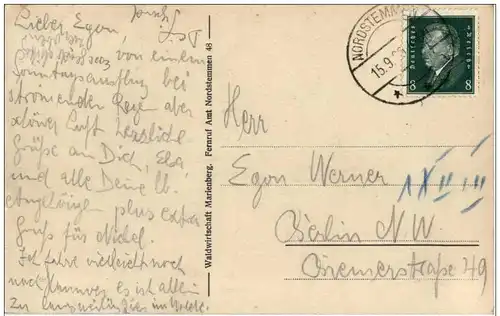 Lieber Egon,
von einem
Sonntagsausflug bei
strömendem Regen aber
schöner Luft herzliche
Grüße an Dich, Elsa
und alle Deine lb.
Angehörigen plus extra
Gruß für
Ich fahre vielleicht noch
nach Hannover, es ist allein
zu langweilig hier im
Waldwirtschaft Marienberg. Fernruf Amt Nordstemmen 48
NORDSTEMMEN
15.9.
Deutsches Reich
8 8
Herr
Egon Werner
Berlin N.W.
Bremerstraße 49